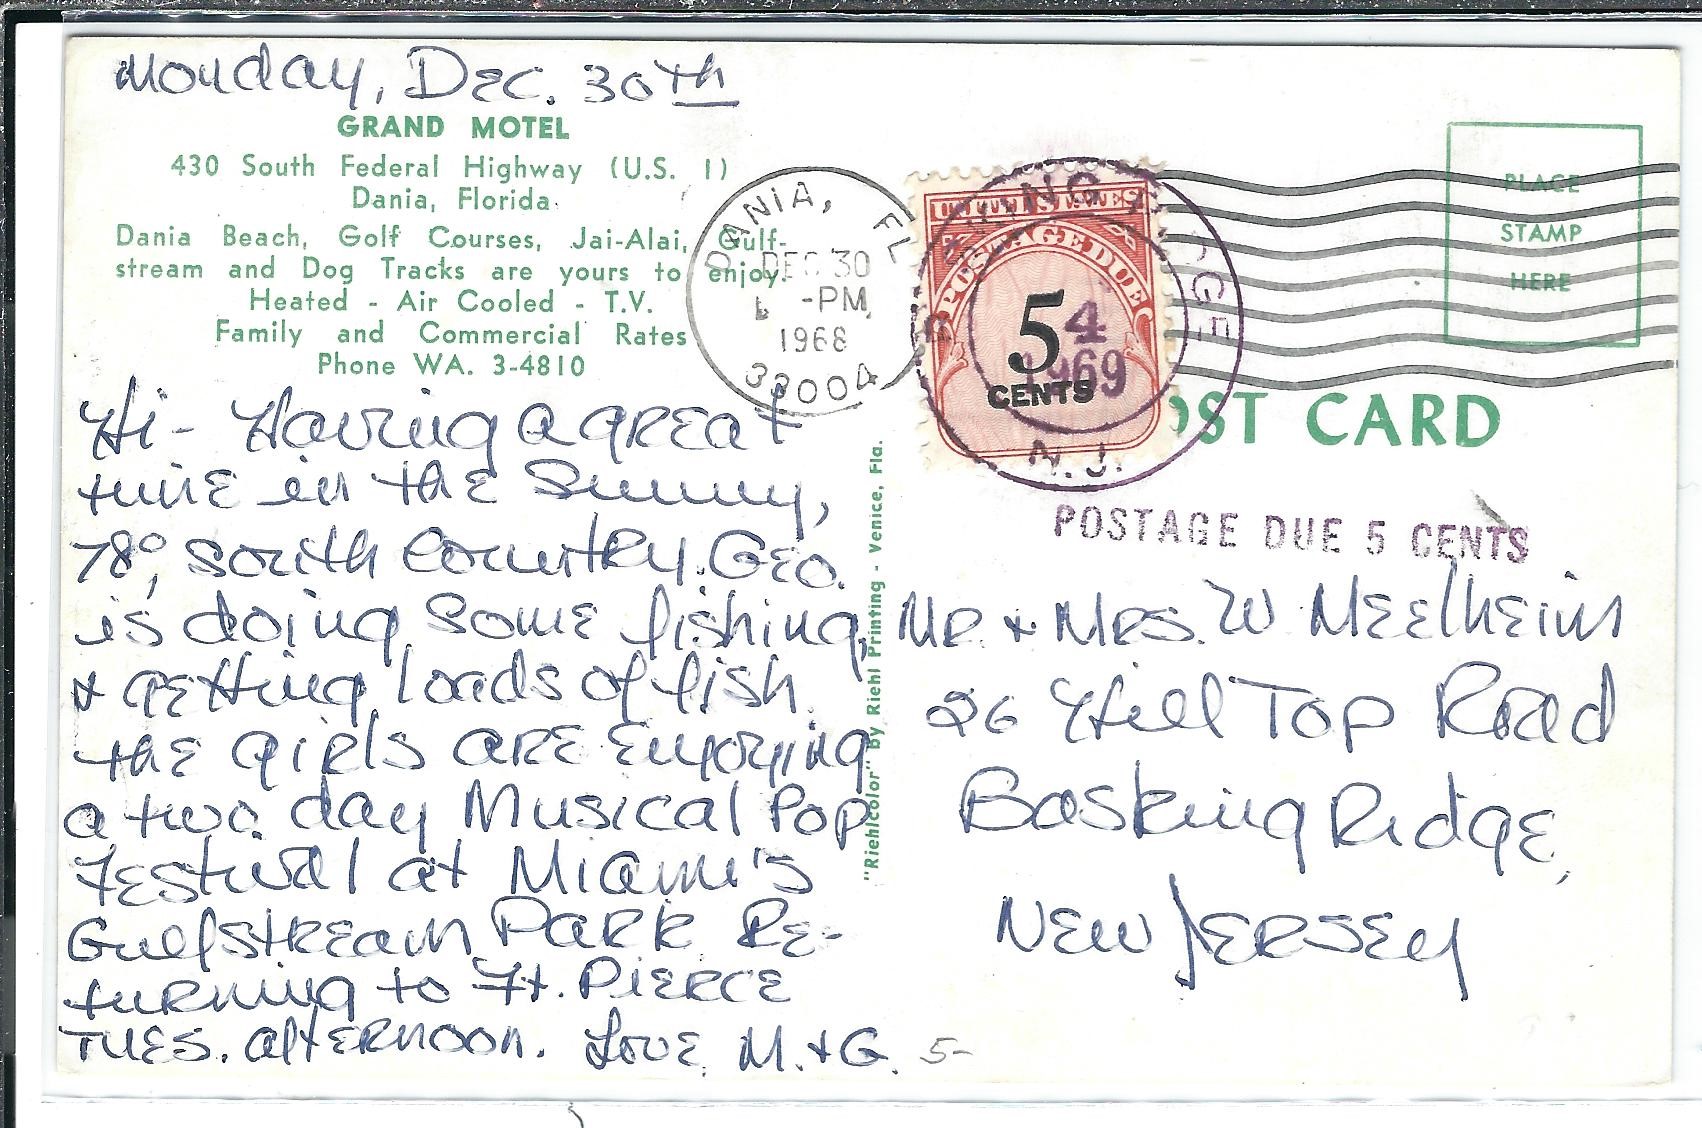 Monday, Dec. 30th
GRAND MOTEL
430 South Federal Highway (U.S. 1)
Dania, Florida
Dania Beach, Golf Courses, Jai-Alai, Gulf-
stream and Dog Tracks are yours to enjoy.
Heated - Air Cooled - T.V.
Family and Commercial Rates
Phone WA. 3-4810
Hi - Having a great
time in the Sunny,
78°, South Country. Geo.
is doing some fishing,
& getting loads of fish.
The girls are enjoying
a two day Musical Pop
Festival at Miami's
Gulfstream Park Re-
turning to Ft. Pierce
Tues. afternoon. Love M. & G.
5-
"Riehlcolor" by Riehl Printing - Venice, Fla.
DANIA, FL
DEC 30
-PM
1968
33004
UNITED STATES
POSTAGE DUE
5
CENTS
4
1969
N.J.
PLACE
STAMP
HERE
POST CARD
POSTAGE DUE 5 CENTS
Mr. & Mrs. W Meelheim
26 Hill Top Road
Basking Ridge,
New Jersey